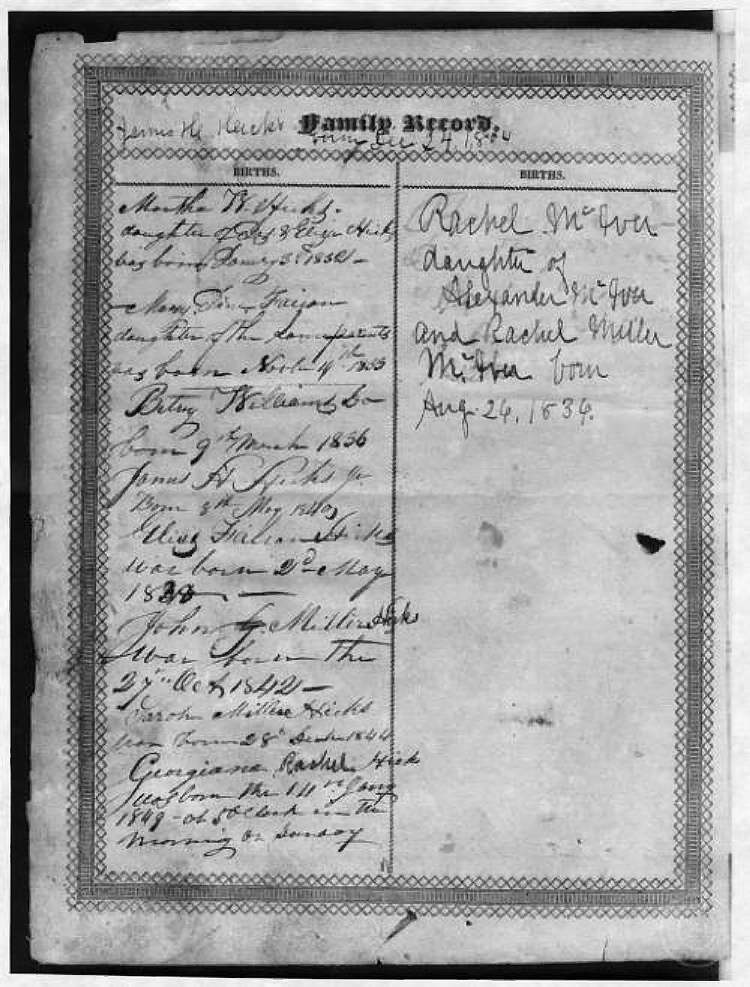 Family Record.
James H. Hicks born Dec 24 18
BIRTHS.
Martha W Hicks.
daughter of & Eliza Hicks
was born 3d 183
Mary Faison
daughter of the same parents
was born 4th 183
Betsy Williams Do
born 9th March 1836
James H Hicks Jr
Born 8th May 1840
Eliza Faison Hicks
was born 2d May
1838
John G. Miller Hicks
was born the
27th Oct 1842 –
Sarah Miller Hicks
was born 28th 1844
Georgiana Rachel Hicks
was born the 11th Jany
1849 – at 5 O'Clock in the
morning on Sunday
BIRTHS.
Rachel McIver
daughter of
Alexander McIver
and Rachel Miller
McIver born
Aug. 24, 1834.